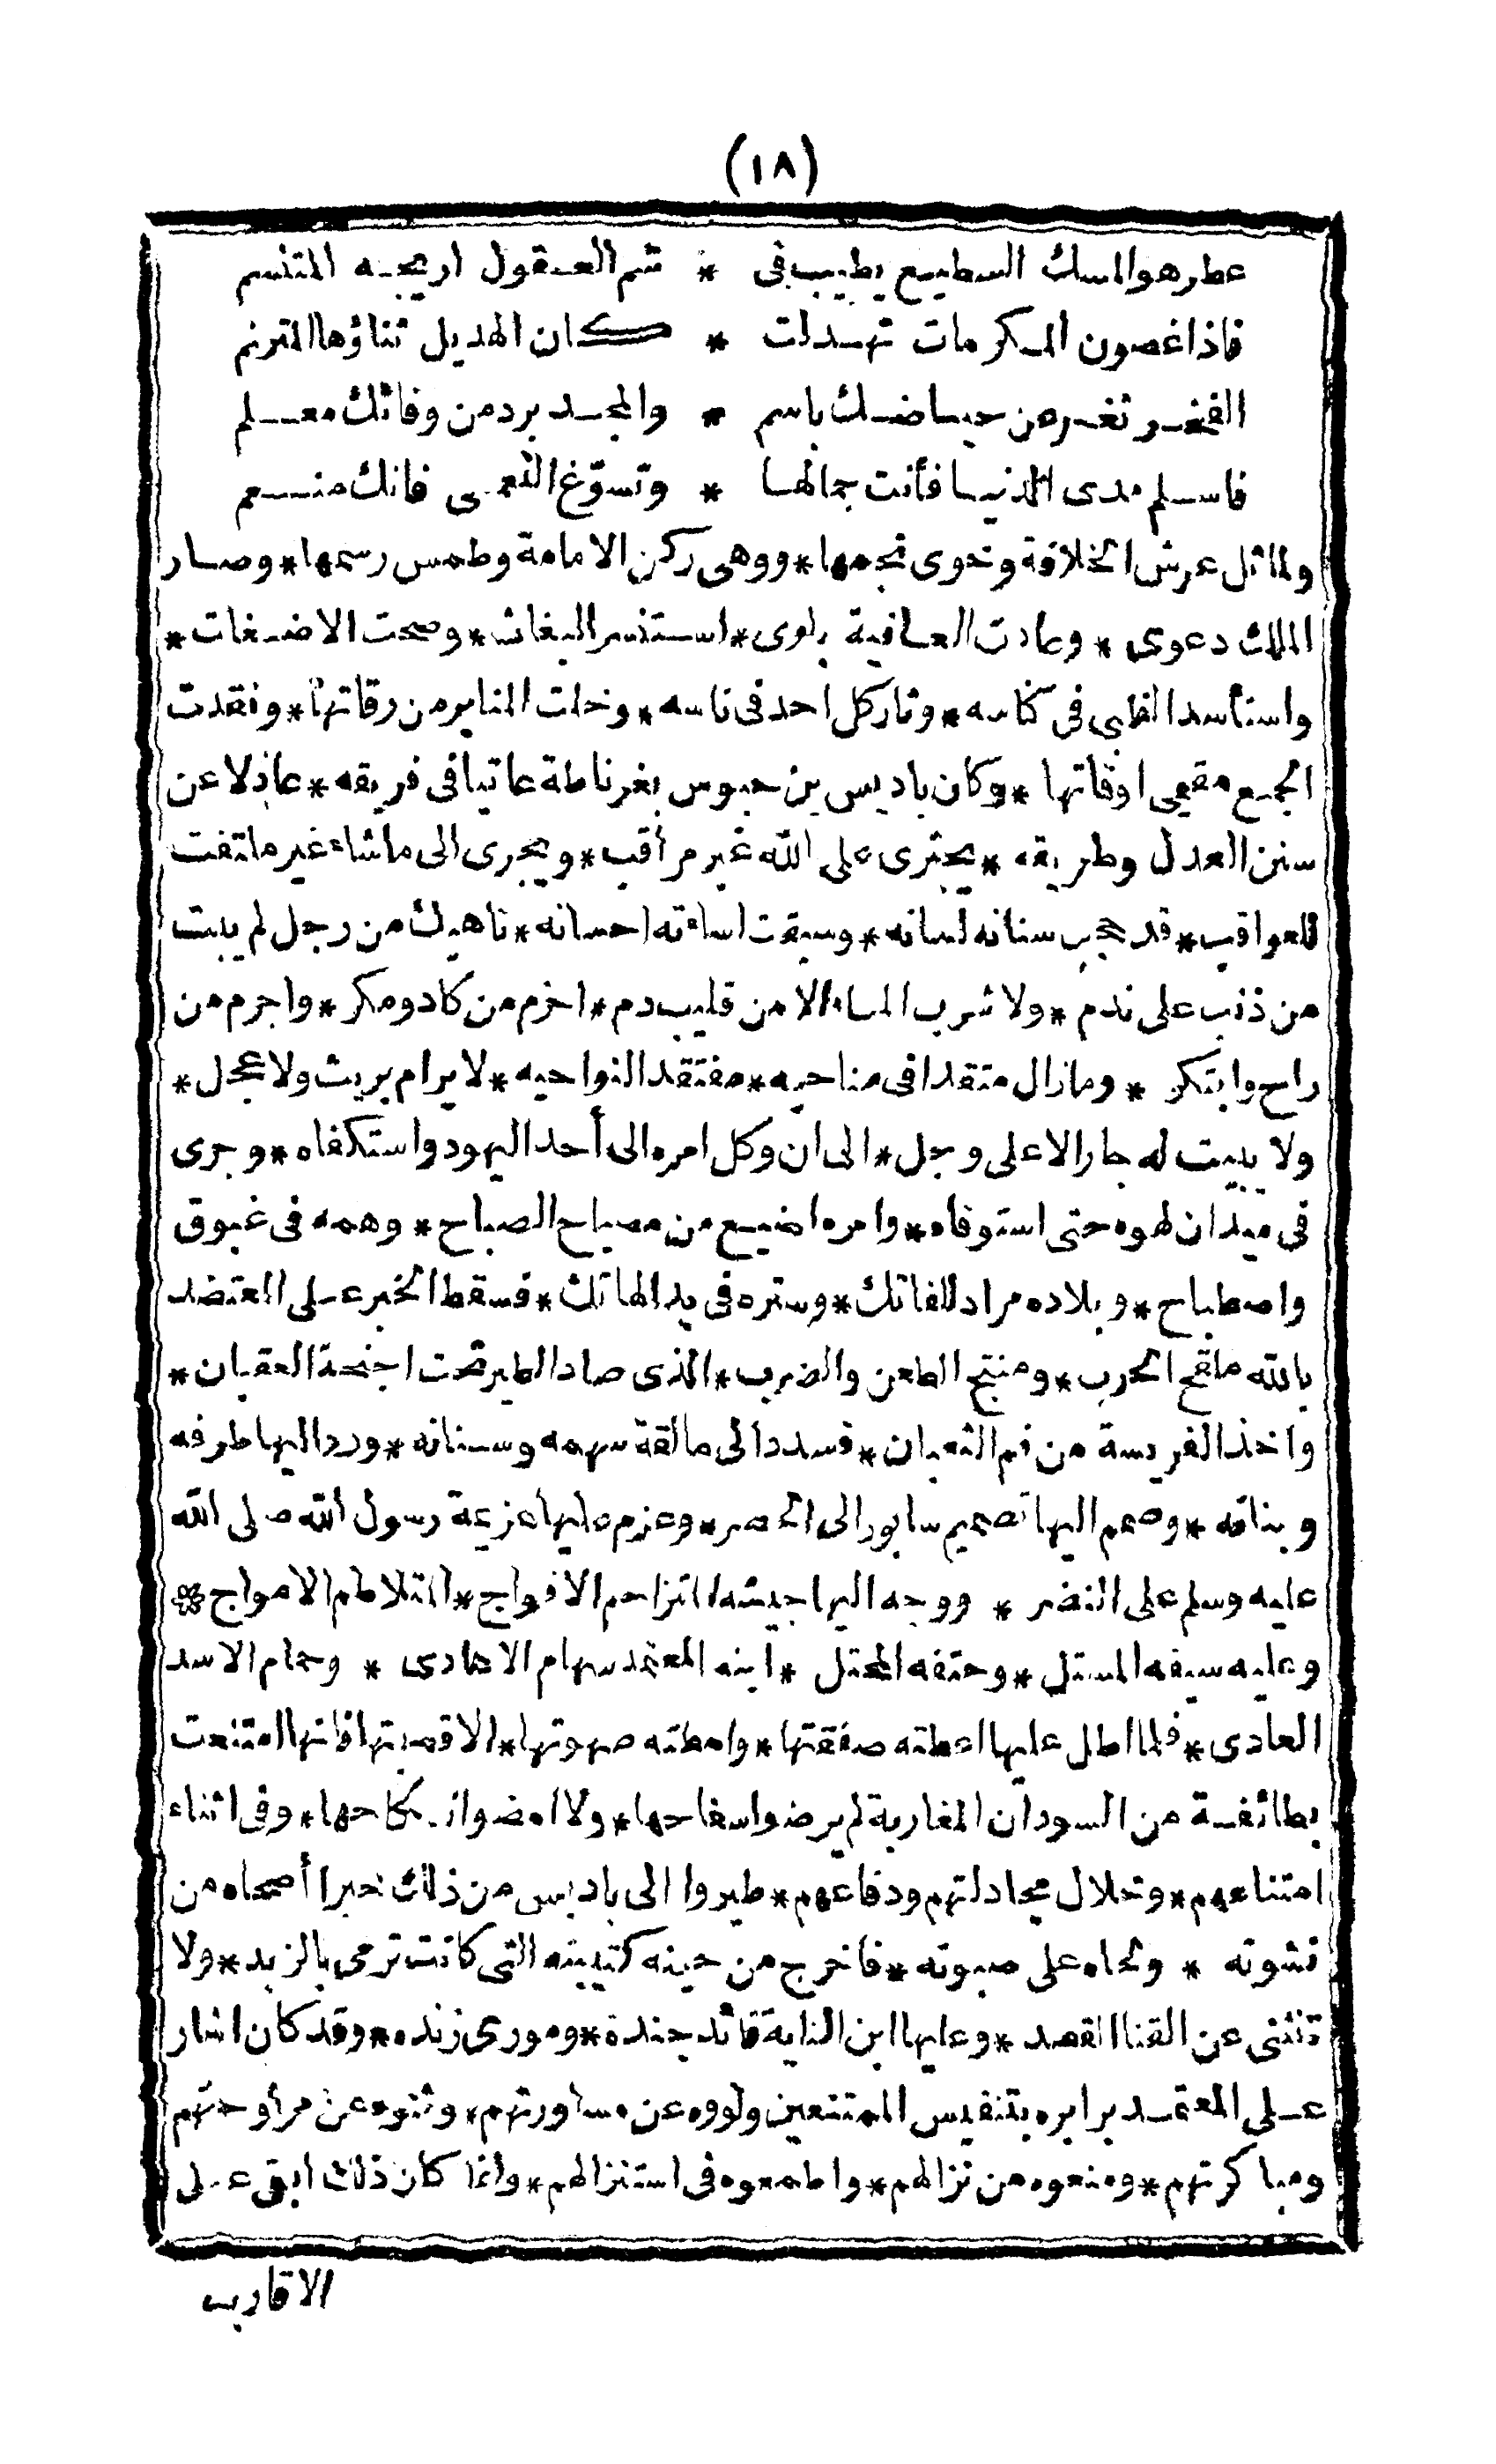 (١٨)
عطر هو المسك السطيع يطيب فى * شم العقول اريجه المتنسم
فاذا غصون المكرمات تهدلت * كان الهديل ثناؤها المترنم
الفخر ثغر عن حياضك باسم * والمجد برد من وفائك معلم
فاسلم مدى الدنيا فأنت جمالها * وتسوّغ النعمى فانك منعم
ولما ثل عرش الخلافة وخوى نجمها * ووهى ركن الامامة وطمس رسمها * وصار
الملك دعوى * وعادت العافية بلوى * استنسر البغاث * وصحت الاضغاث *
واستأسد الظبى فى كناسه * وثار كل احد فى ناسه * وخلت المنابر من رقاتها * وفقدت
الجمع مقيمى اوقاتها * وكان باديس بن حبوس بغرناطة عاتيا فى فريقه * عادلا عن
سنن العدل وطريقه * يجترى على الله غير مراقب * ويجرى الى ماشاء غير ملتفت
للعواقب * قد حجب سنانه لسانه * وسبقت اساءته احسانه * ناهيك من رجل لم يبت
من ذنب على ندم * ولا شرب الماء الا من قليب دم * اخرم من كاد ومكر * واجرم من
راح وابتكر * ومازال متقدا فى مناحيه * مفتقدا لنواحيه * لايرام بريث ولا عجل *
ولا يبيت له جار الا على وجل * الى ان وكل امره الى أحد اليهود واستكفاه * وجرى
فى ميدان لهوه حتى استوفاه * وامره اضيع من مصباح الصباح * وهمه فى غبوق
واصطباح * وبلاده مراد للفاتك * وستره فى يد الهاتك * فسقط الخبر على المعتضد
بالله ملقح الحرب * ومنتج الطعن والضرب * الذى صاد الطير تحت اجنحة العقبان *
واخذ الفريسة من فم الثعبان * فسدد الى مالقة سهمه وسنانه * ورد اليها طرفه
وبنانه * وصمم اليها تصميم سابور الى الحصر * وعزم عليها عزيمة رسول الله صلى الله
عليه وسلم على النضر * ووجه اليها جيشه المتزاحم الافواج * المتلاطم الامواج *
وعليه سيفه المستل * وحتفه المحتل * ابنه المعتمد سهام الاعادى * وحمام الاسد
العادى * فلما اطل عليها اعطته صفقتها * وامطته صهوتها * الا قصبتها فانها امتنعت
بطائفة من السودان المغاربة لم يرضوا سفاحها * ولا امضوا نكاحها * وفى اثناء
امتناعهم * وخلال مجادلتهم ودفاعهم * طيروا الى باديس من ذلك خبرا أصحاه من
نشوته * ولحاه على صبوته * فاخرج من حينه كتيبته التى كانت ترمى بالزبد * ولا
تنثنى عن القنا القصد * وعليها ابن الناية قائد جنده * ومورى زنده * وقد كان اشار
على المعتمد برابره بتنفيس الممتنعين ولووه عن مساورتهم * وثنوه عن مراوحتهم
ومباكرتهم * ومنعوه من نزالهم * واطمعوه فى استنزالهم * وانما كان ذلك ابقى على
الاقارب